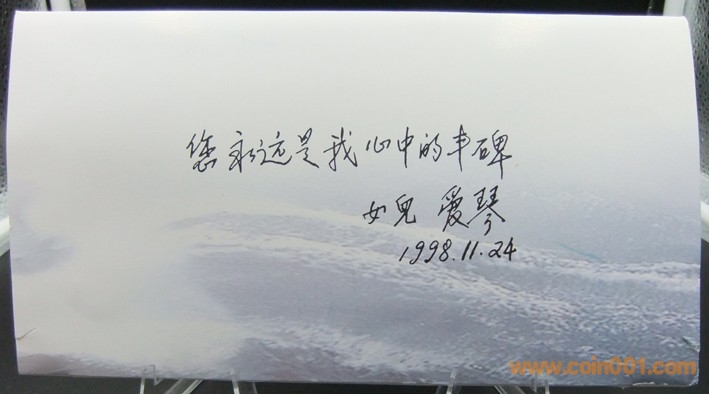 您永远是我心中的丰碑
女儿 爱琴
1998.11.24
www.coin001.com